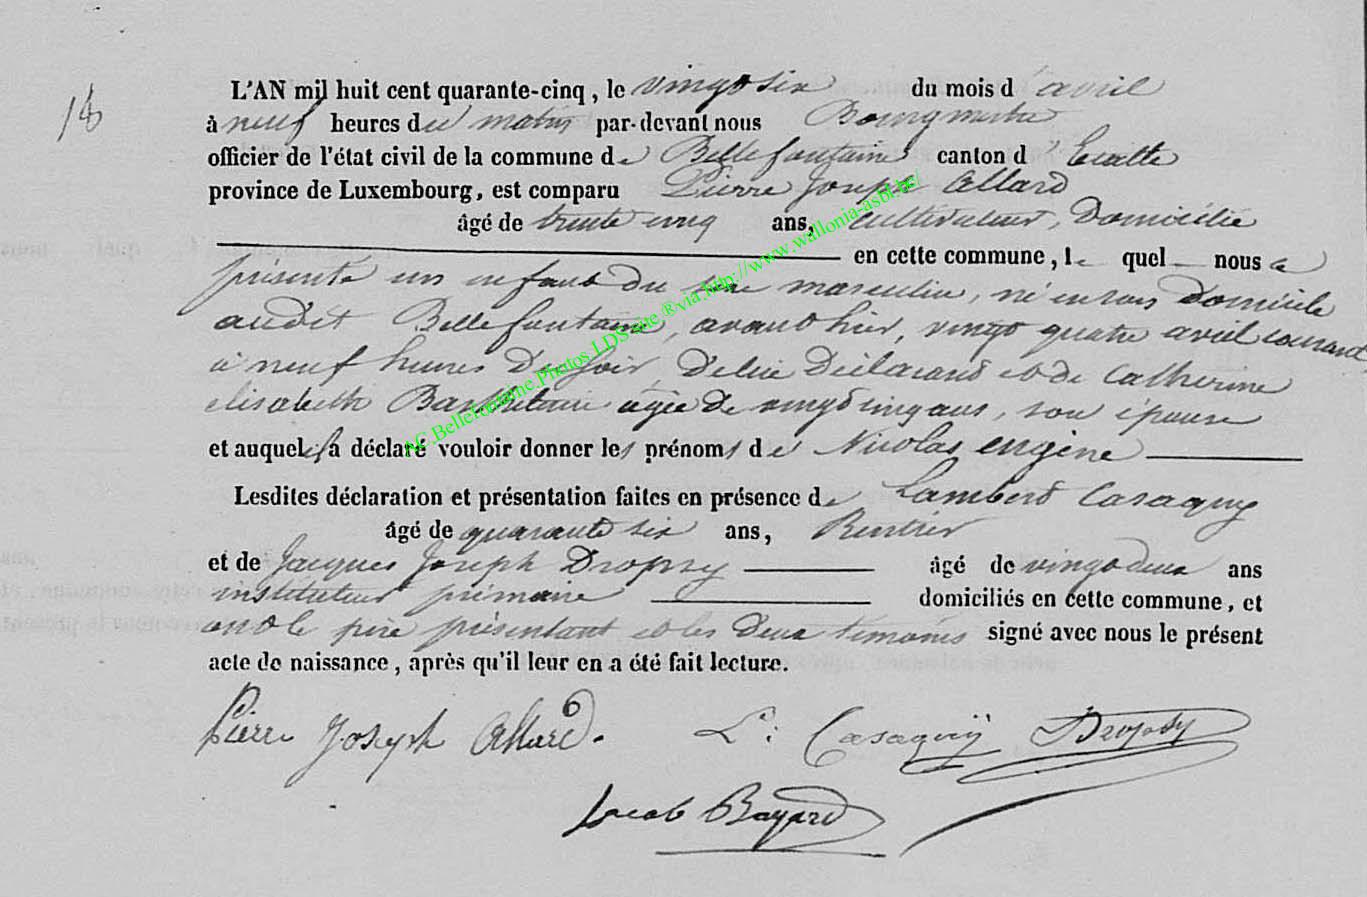 18
L'AN mil huit cent quarante-cinq, le vingt six du mois d'avril
à neuf heures du matin par-devant nous Bourgmestre
officier de l'état civil de la commune de Bellefontaine canton d'Etalle
province de Luxembourg, est comparu Pierre Joseph Allard
âgé de trente cinq ans, cultivateur, Domicilié
en cette commune, lequel nous a
présenté un enfant du sexe masculin, né en son Domicile
audit Bellefontaine, avant hier, vingt quatre avril courant
à neuf heures Du soir, De lui Déclarant et de Catherine
elisabeth agée De vingt cinq ans, son épouse
et auquel il a déclaré vouloir donner les prénoms de Nicolas eugène
Lesdites déclaration et présentation faites en présence de Lambert Casaquy
âgé de quarante six ans, Rentier
et de Jacques Joseph Dropsy âgé de vingt deux ans
instituteur primaire domiciliés en cette commune, et
ont le père présentant et les Deux témoins signé avec nous le présent
acte de naissance, après qu'il leur en a été fait lecture.
Pierre Joseph Allard. L. Casaquÿ JDropsy
Jacob Bayard
AC.Bellefontaine.Photos LDS site ®via http://www.wallonia-asbl.be/